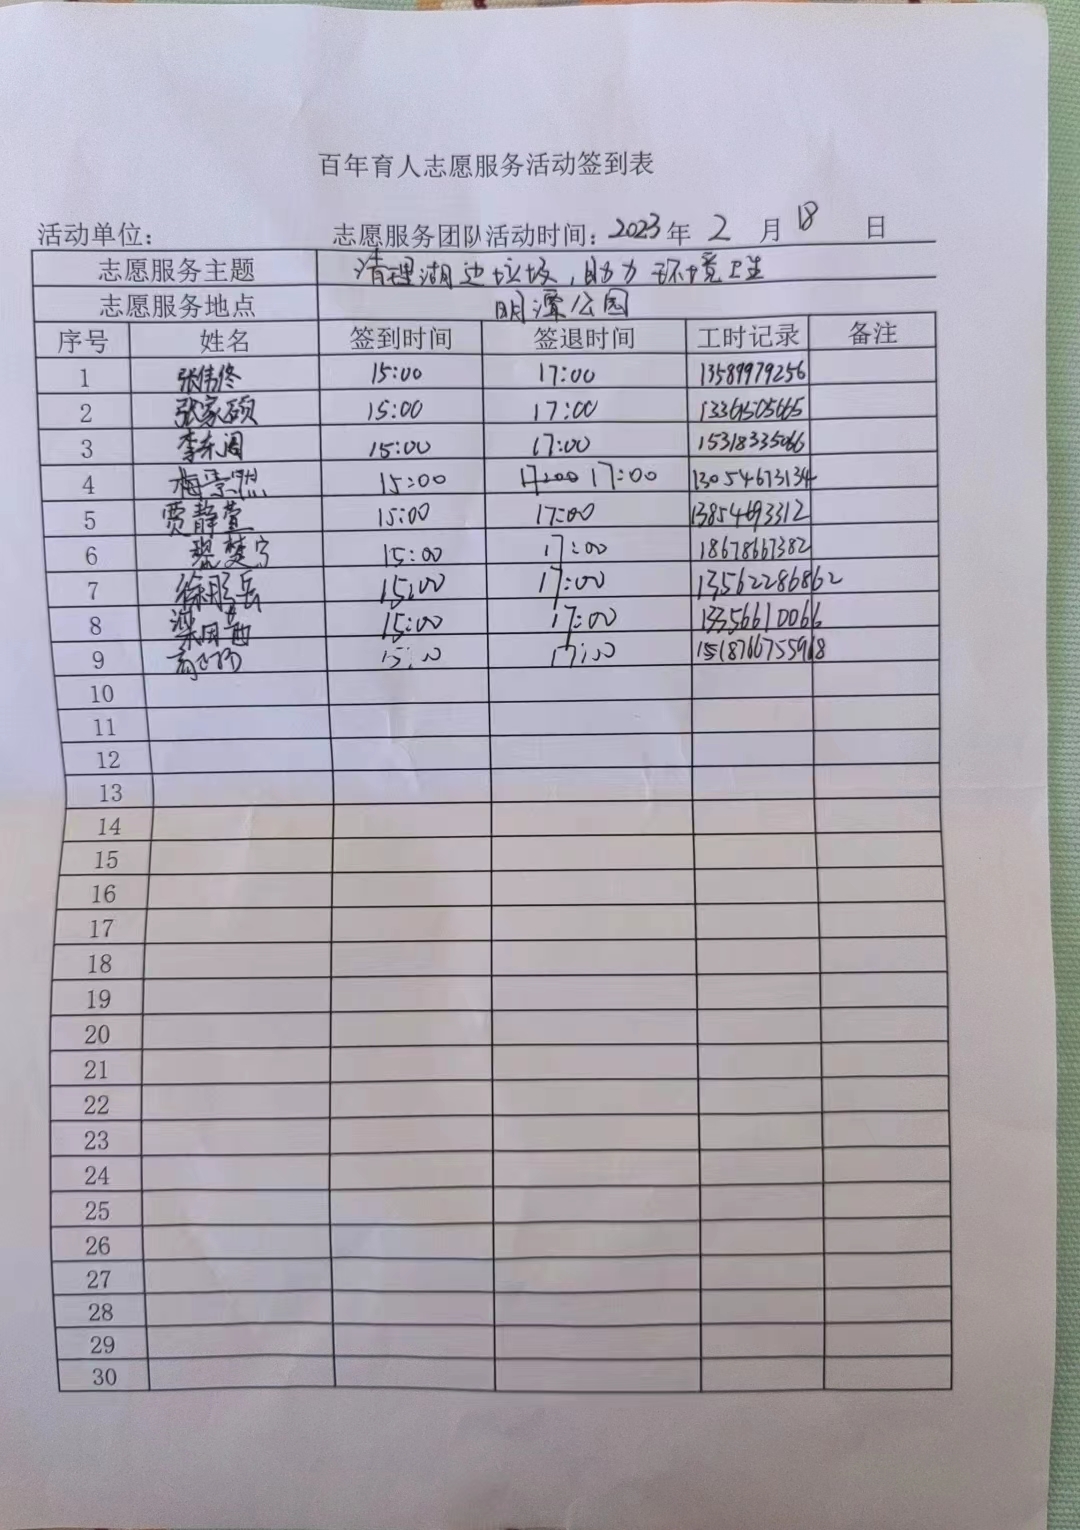 百年育人志愿服务活动签到表
活动单位： 志愿服务团队活动时间：2023年 2 月 18 日
志愿服务主题 清理湖边垃圾，助力环境卫生
志愿服务地点 明潭公园
序号 姓名 签到时间 签退时间 工时记录 备注
1 张伟佟 15:00 17:00 13589979256
2 张家硕 15:00 17:00 13361505665
3 李东阁 15:00 17:00 15318335066
4 梅景熙 15:00 17:00 13054673134
5 贾静萱 15:00 17:00 13854693312
6 楚宁 15:00 17:00 18678667382
7 徐彤岳 15:00 17:00 13562286862
8 15:00 17:00 13356610066
9 15:00 17:00
10
11
12
13
14
15
16
17
18
19
20
21
22
23
24
25
26
27
28
29
30